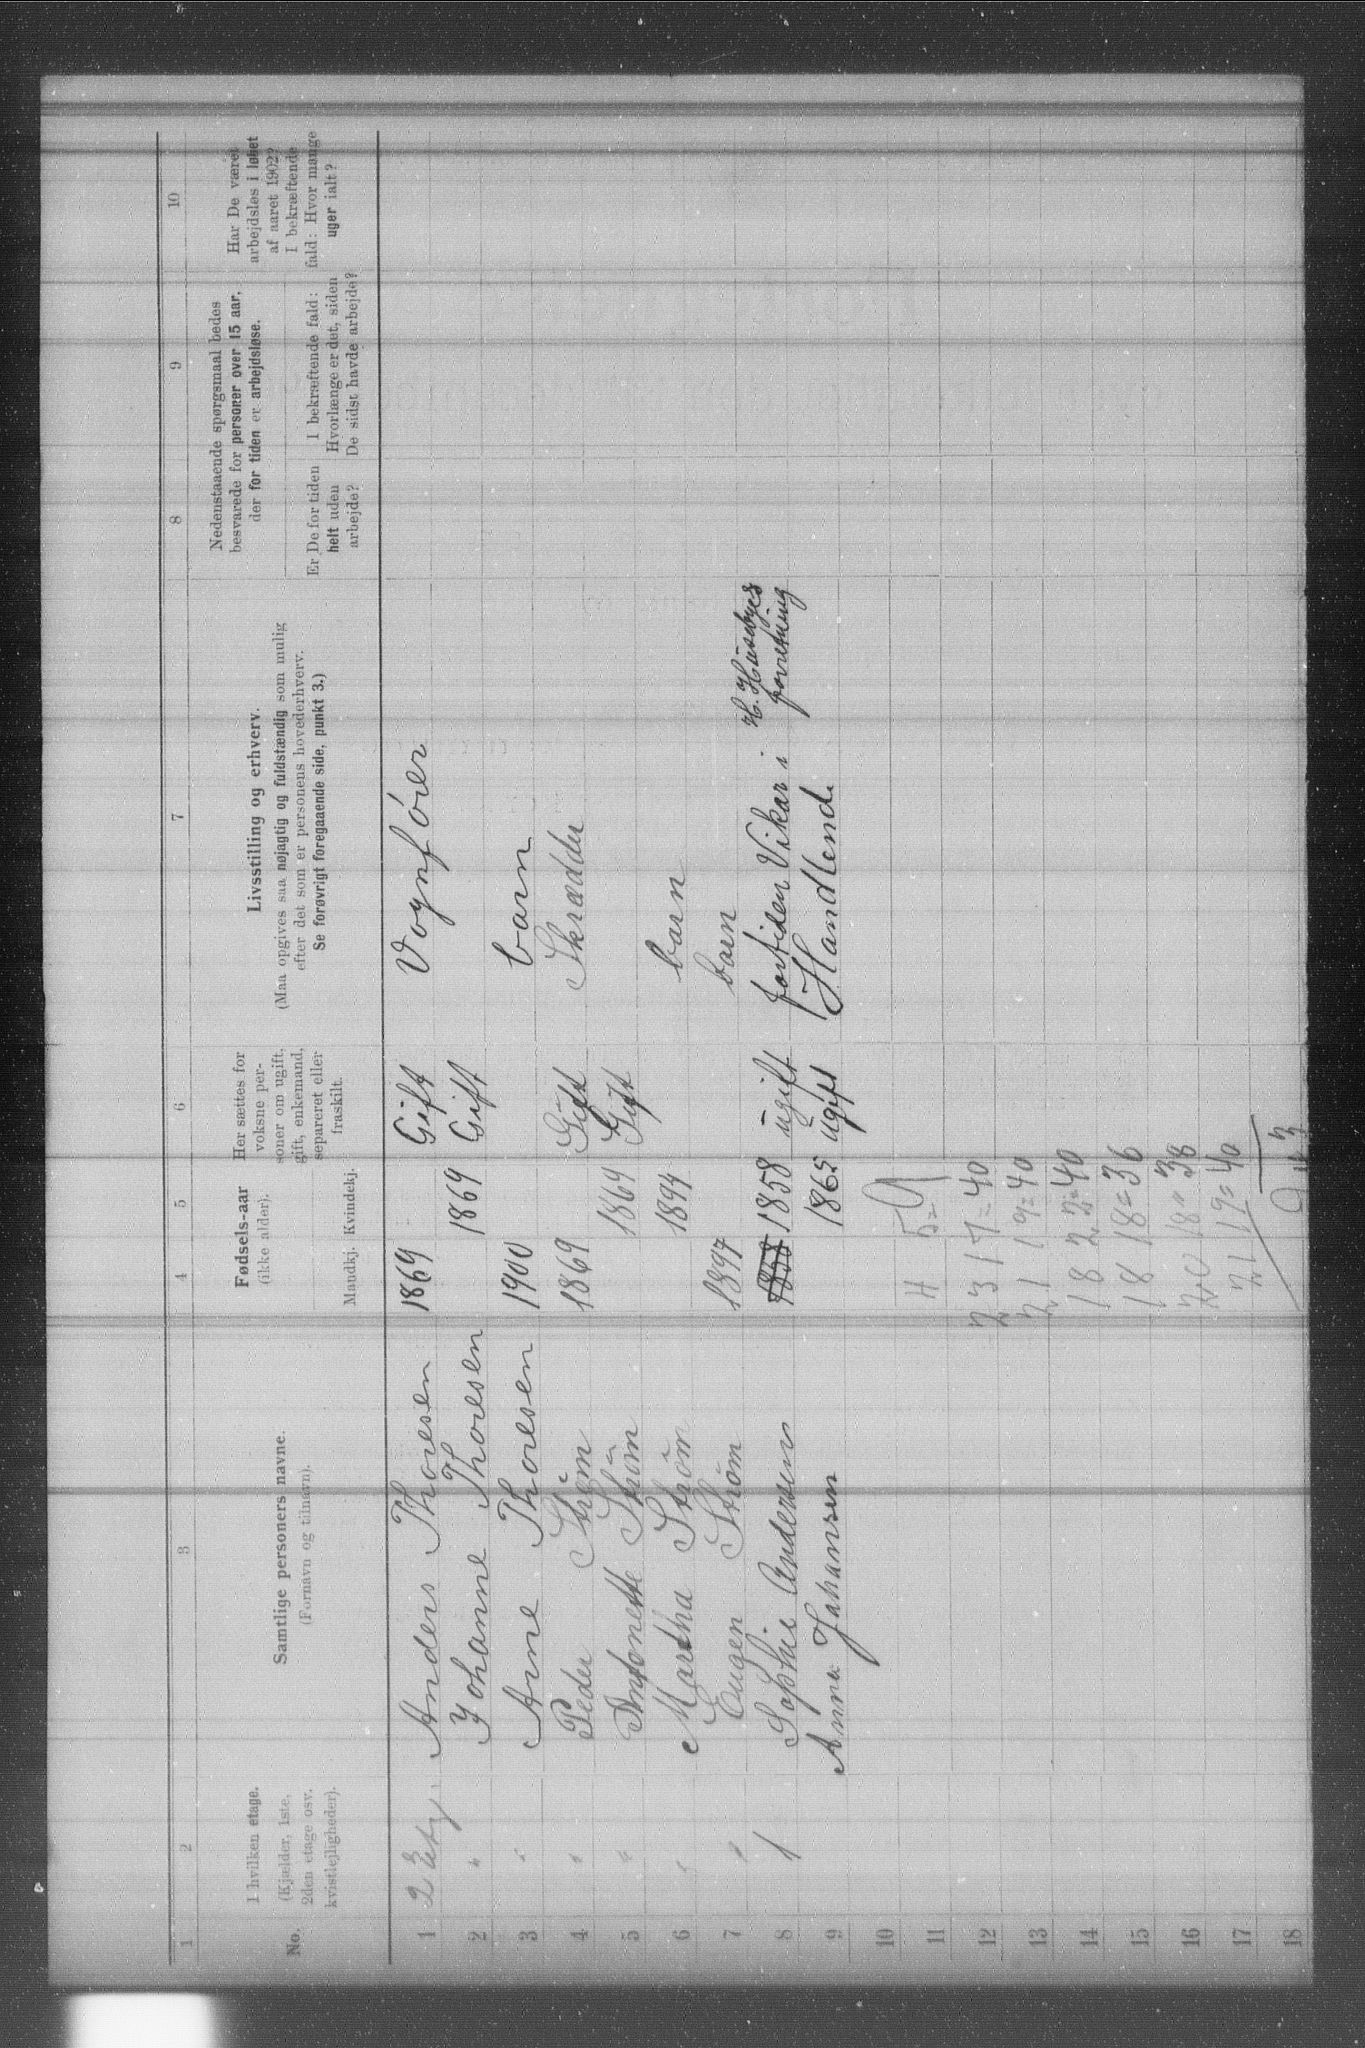 1 2 3 4 5 6 7 8 9 10
No.
I hvilken etage.
(Kjælder, 1ste,
2den etage osv.
kvistlejligheder).
Samtlige personers navne.
(Fornavn og tilnavn).
Fødsels-aar
(ikke alder).
Mandkj. Kvindekj.
Her sættes for
voksne per-
soner om ugift,
gift, enkemand,
separeret eller
fraskilt.
Livsstilling og erhverv.
(Maa opgives saa nøjagtig og fuldstændig som mulig
efter det som er personens hovederhverv.
Se forøvrigt foregaaende side, punkt 3.)
Nedenstaaende spørgsmaal bedes
besvarede for personer over 15 aar,
der for tiden er arbejdsløse.
Er De for tiden
helt uden
arbejde?
I bekræftende fald:
Hvorlænge er det, siden
De sidst havde arbejde?
Har De været
arbejdsløs i løbet
af aaret 1902?
I bekræftende
fald: Hvor mange
uger ialt?
1 2 Etg. Anders Thoresen 1869 Gift Vognfører
2 " Johanne Thoresen 1869 Gift
3 " Arne Thoresen 1900 barn
4 " Peder Strøm 1869 Gift Skrædder
5 " Antonette Strøm 1864 Gift
6 " Martha Strøm 1894 barn
7 " Eugen Strøm 1897 barn
8 1 Sophie Andersen 1858 1858 ugift fortiden Vikar i H. Husebyes
forretning
9 Anna Johansen 1865 ugift Handlend.
10
11 4 5=9
12 23 17=40
13 21 19=40
14 18 22=40
15 18 18=36
16 20 18=38
17 21 19=40
18